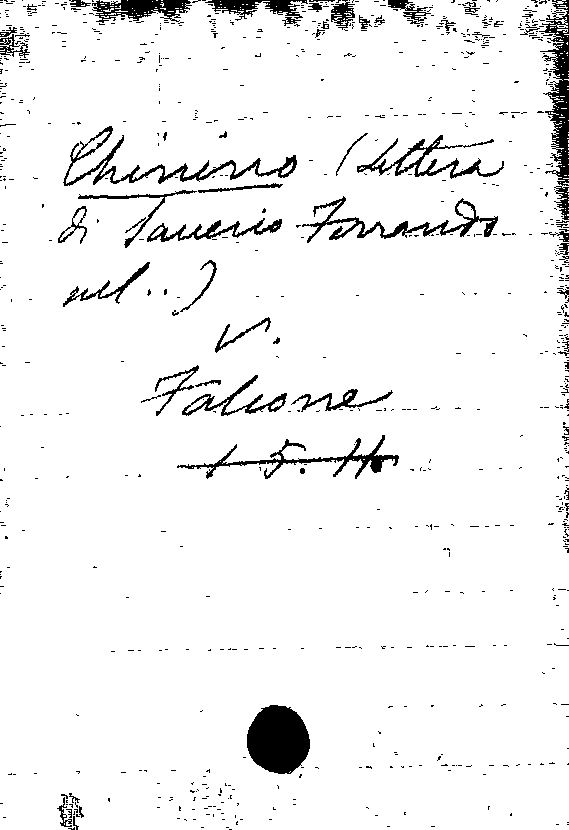 Chinino (Lettera
di Saverio Ferrando
nel..)
V.
Falcone
1 5. 11